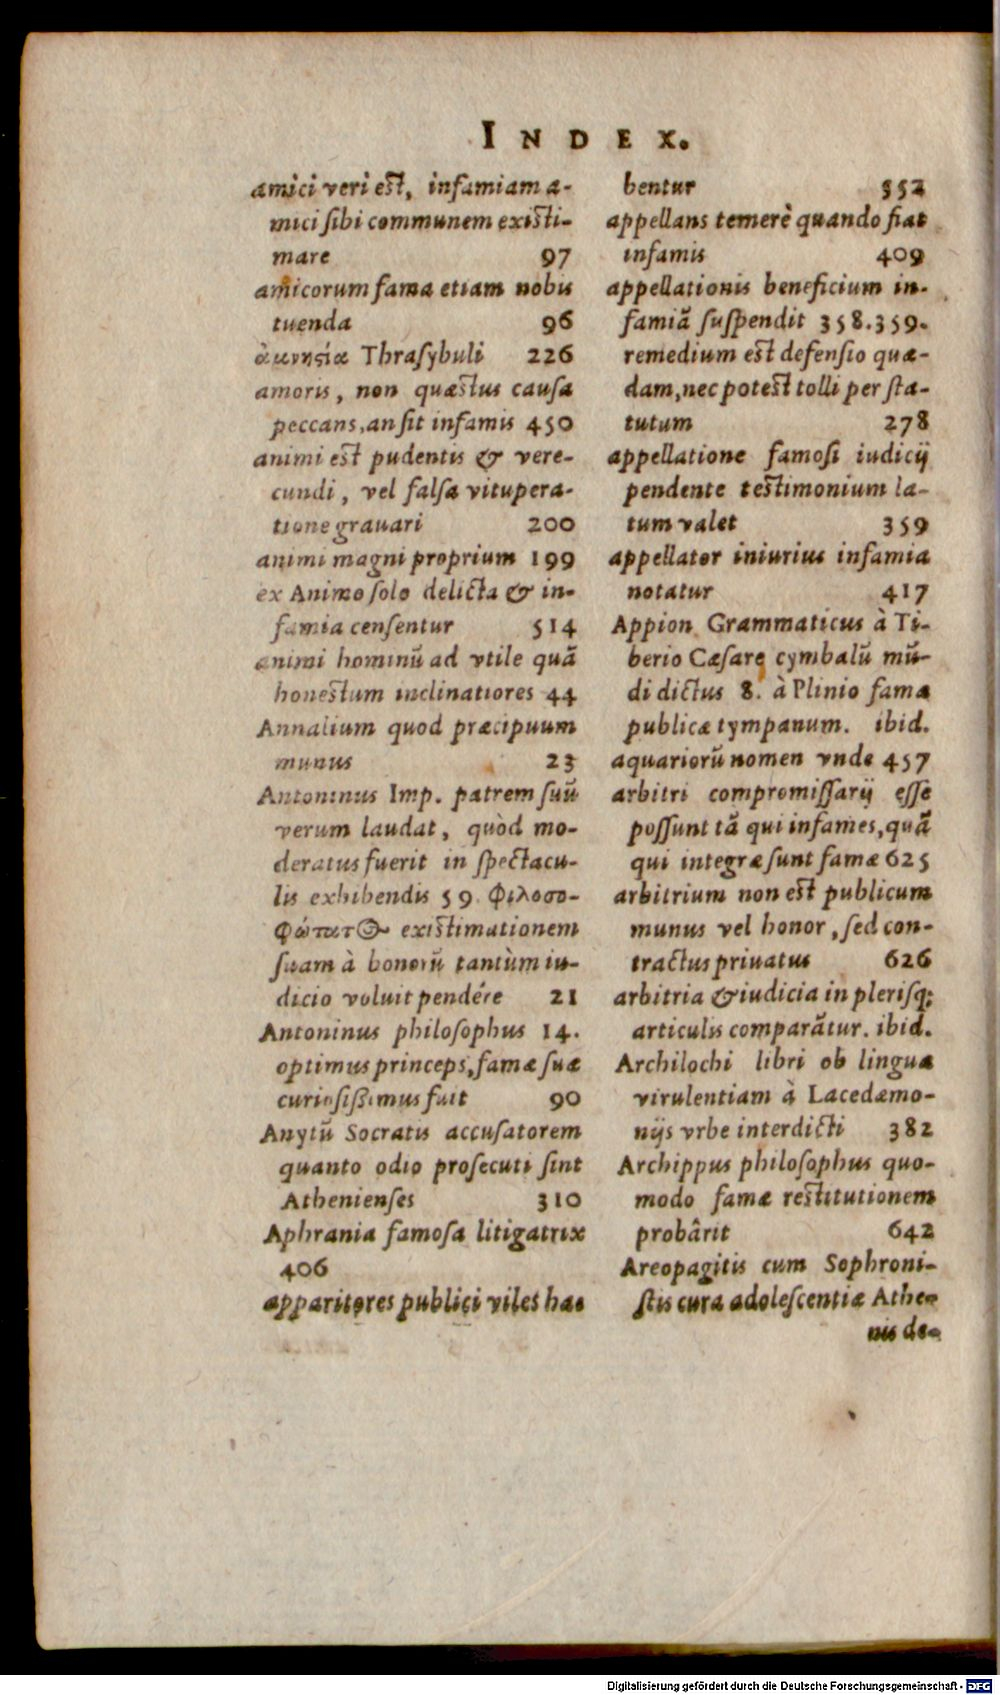 INDEX.
amici veri est, infamiam a-
mici sibi communem existi-
mare 97
amicorum fama etiam nobis
tuenda 96
Thrasybuli 226
amoris, non quæstus causa
peccans, an sit infamis 450
animi est pudentis & vere-
cundi, vel falsa vitupera-
tione grauari 200
animi magni proprium 199
ex Animo solo delicta & in-
famia censentur 514
animi hominū ad vtile quā
honestum inclinatiores 44
Annalium quod præcipuum
munus 23
Antoninus Imp. patrem suū
verum laudat, quòd mo-
deratus fuerit in spectacu-
lis exhibendis 59. Φιλοσο-
existimationem
suam à bonorū tantùm iu-
dicio voluit pendére 21
Antoninus philosophus 14.
optimus princeps, famæ suæ
curiosissimus fuit 90
Anytū Socratis accusatorem
quanto odio prosecuti sint
Athenienses 310
Aphrania famosa litigatrix
406
apparitores publici viles ha-
bentur 552
appellans temerè quando fiat
infamis 409
appellationis beneficium in-
famiā suspendit 358.359.
remedium est defensio quæ-
dam, nec potest tolli per sta-
tutum 278
appellatione famosi iudicij
pendente testimonium la-
tum valet 359
appellator iniurius infamia
notatur 417
Appion Grammaticus à Ti-
berio Cæsare cymbalū mū-
di dictus 8. à Plinio famæ
publicæ tympanum. ibid.
aquariorū nomen vnde 457
arbitri compromissarij esse
possunt tā qui infames, quā
qui integræ sunt famæ 625
arbitrium non est publicum
munus vel honor, sed con-
tractus priuatus 626
arbitria & iudicia in plerisq;
articulis comparātur. ibid.
Archilochi libri ob linguæ
virulentiam à Lacedæmo-
nijs vrbe interdicti 382
Archippus philosophus quo-
modo famæ restitutionem
probârit 642
Areopagitis cum Sophroni-
stis cura adolescentiæ Athe-
nis de-
Digitalisierung gefördert durch die Deutsche Forschungsgemeinschaft - DFG